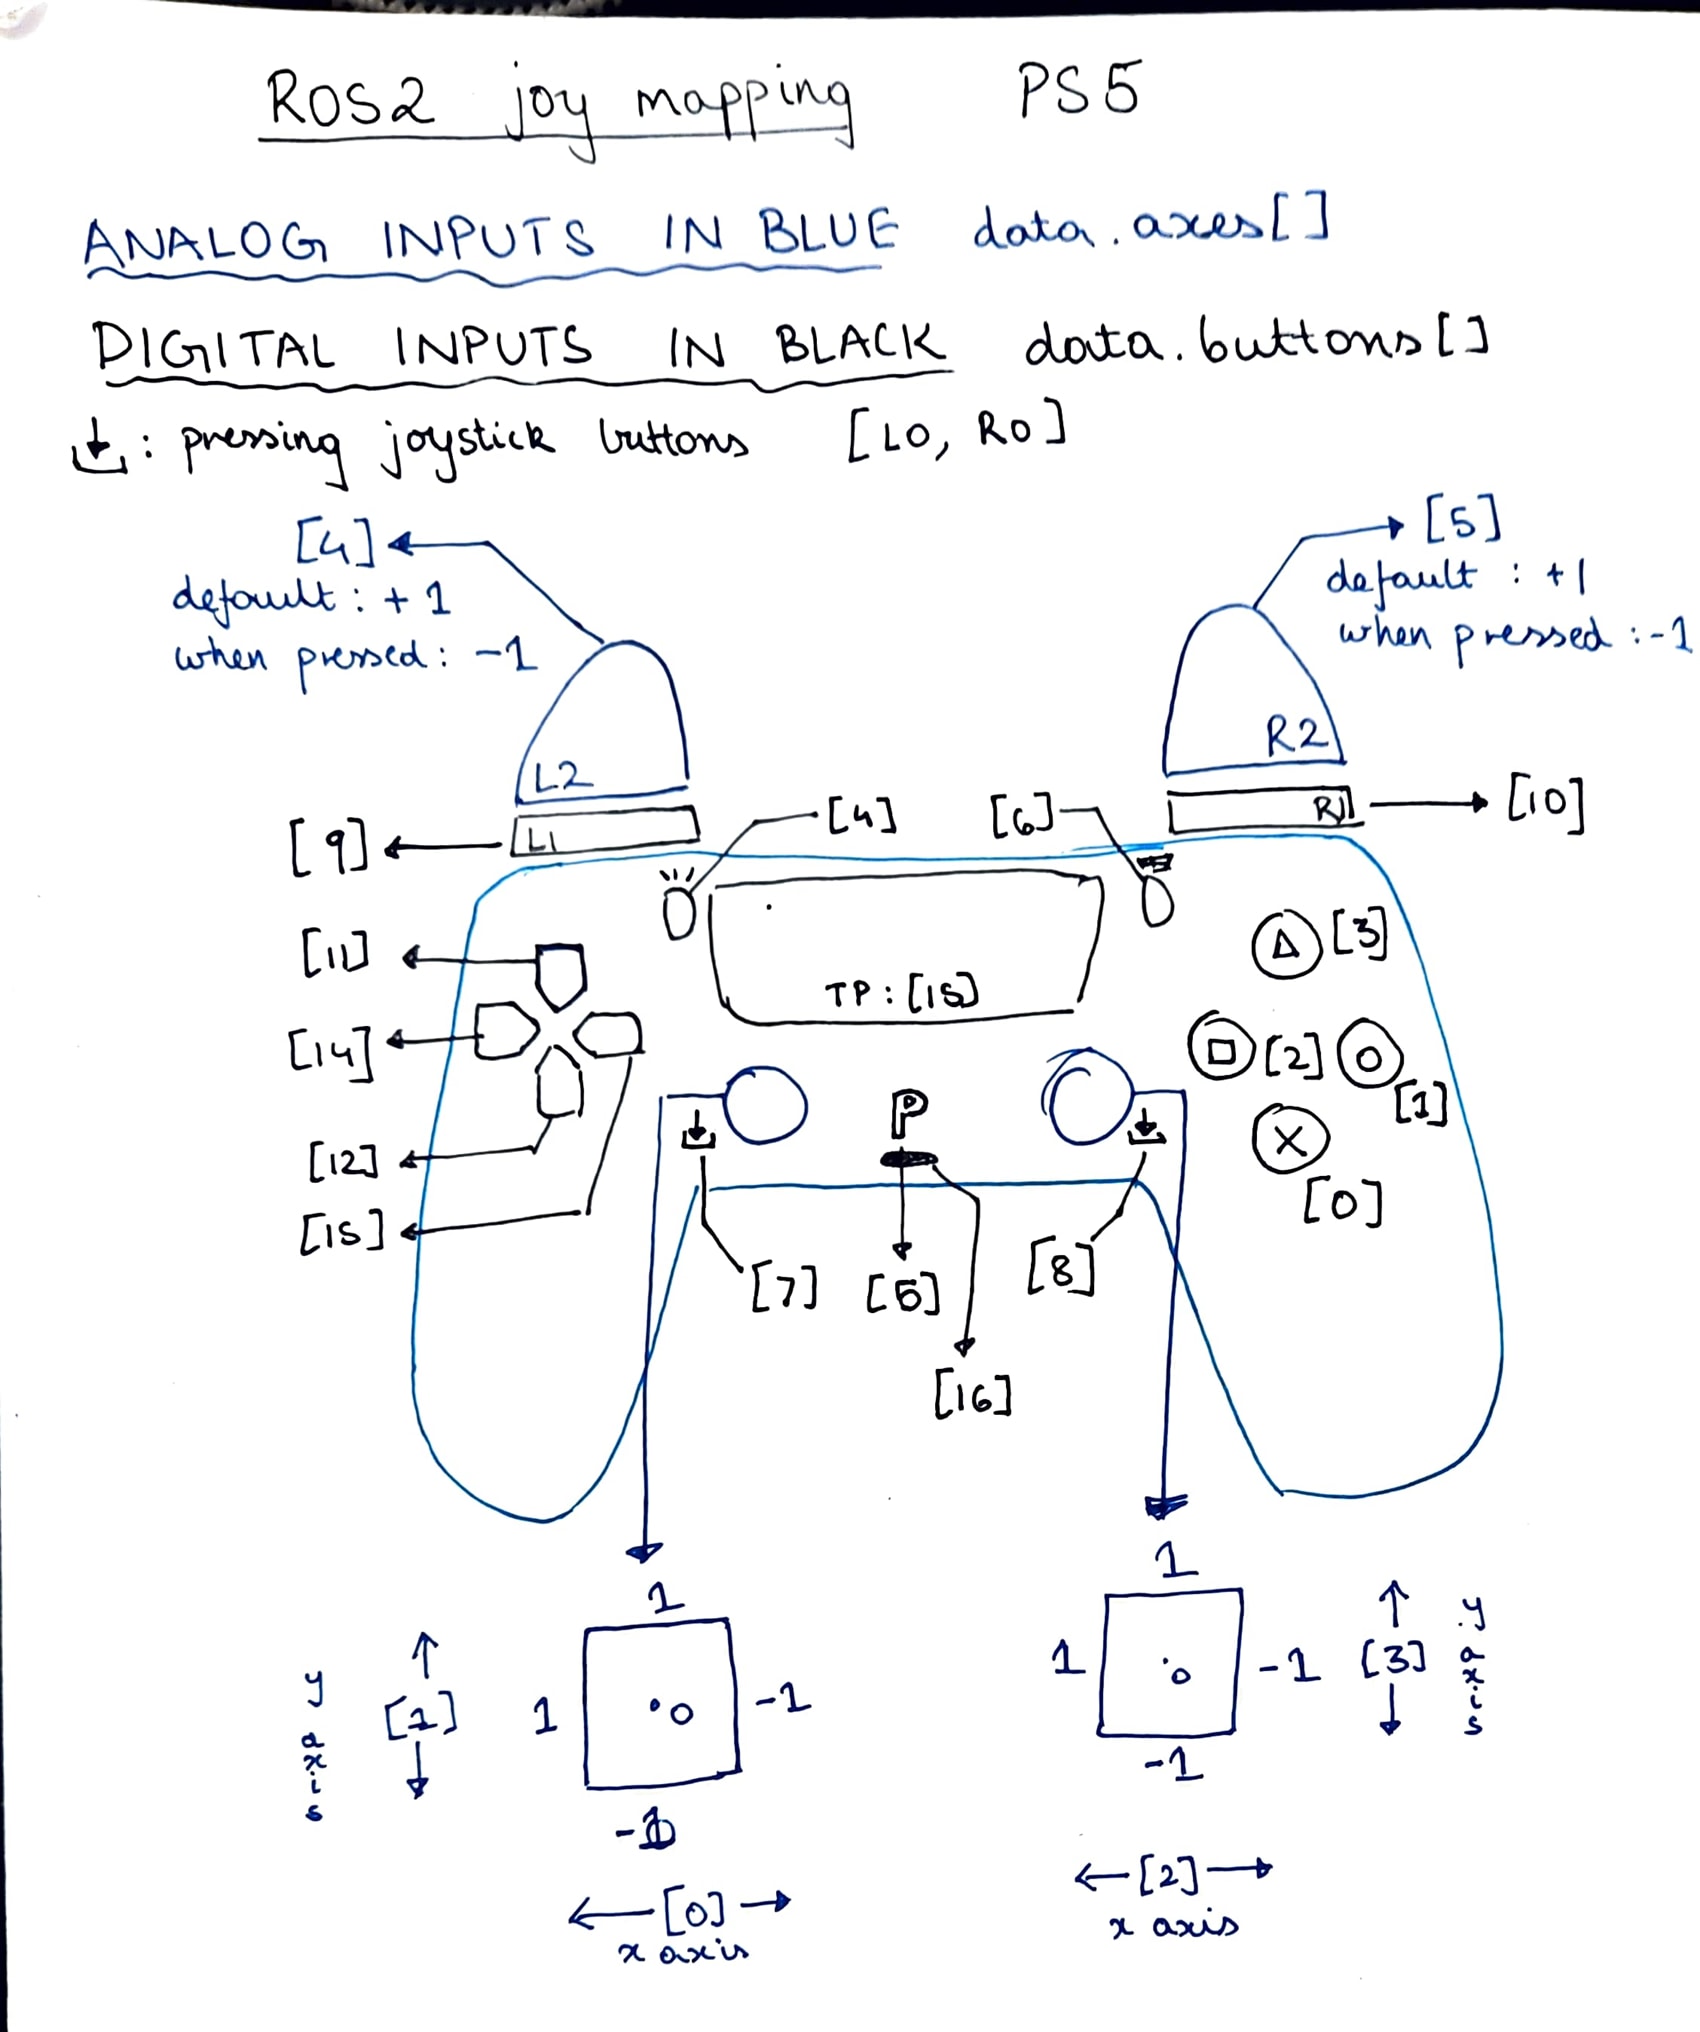 ROS2 joy mapping PS5
ANALOG INPUTS IN BLUE data.axes[]
DIGITAL INPUTS IN BLACK data.buttons[]
: pressing joystick buttons [LO, RO]
[4]
default: +1
when pressed: -1
[5]
default : +1
when pressed :-1
L2
R2
[9]
L1
[4]
[6]
R1
[10]
[11]
TP:[15]
△ [3]
[14]
□ [2] ○
[1]
P
X
[0]
[12]
[15]
[7]
[5]
[8]
[16]
1
1
y axis
[1]
1
0
-1
1
0
-1
[3]
y axis
-1
-1
←[0]→
x axis
←[2]→
x axis